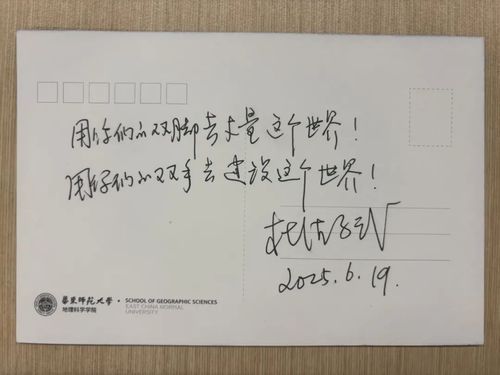 用你们的双脚去丈量这个世界！
用你们的双手去建设这个世界！
2025.6.19.
華東師范大学·
地理科学学院
SCHOOL OF GEOGRAPHIC SCIENCES
EAST CHINA NORMAL
UNIVERSITY